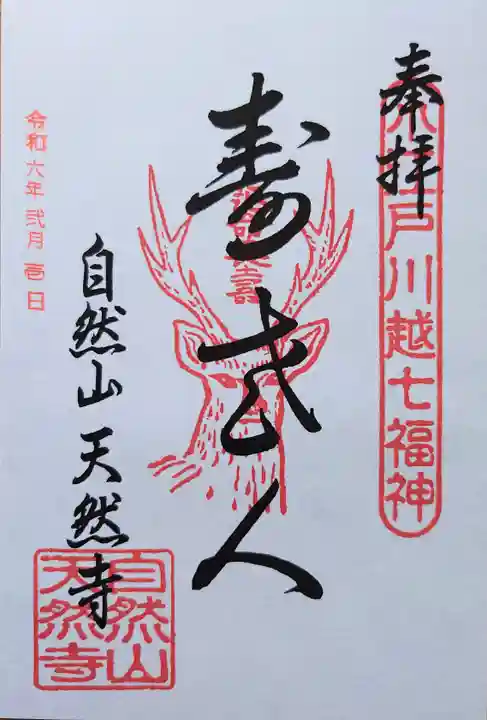 奉拝
小江戸川越七福神
寿老人
自然山天然寺
令和六年弐月壱日
自然山
天然寺